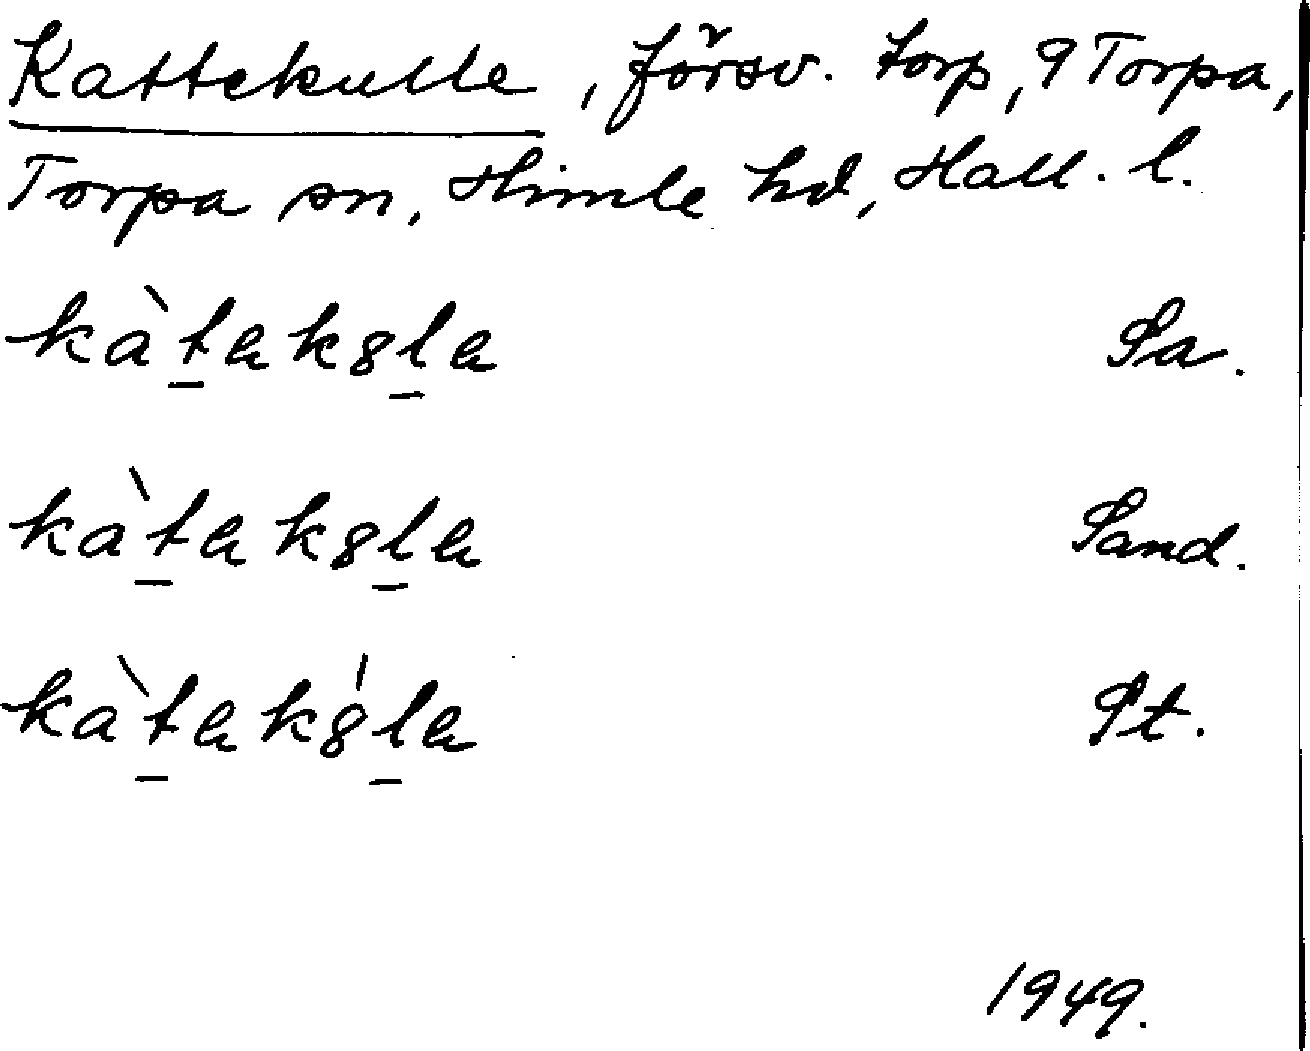 Kattekulle, försv. torp, 9 Torpa,
Torpa sn, Himle hd, Hall. l.
kàt̲ak8l̲a Sa.
kàt̲ak8l̲a Sand.
kàt̲ak8́l̲a St.
1949.